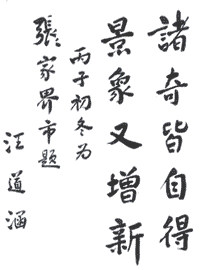 諸奇皆自得
景象又增新
丙子初冬为
張家界市題
汪道涵